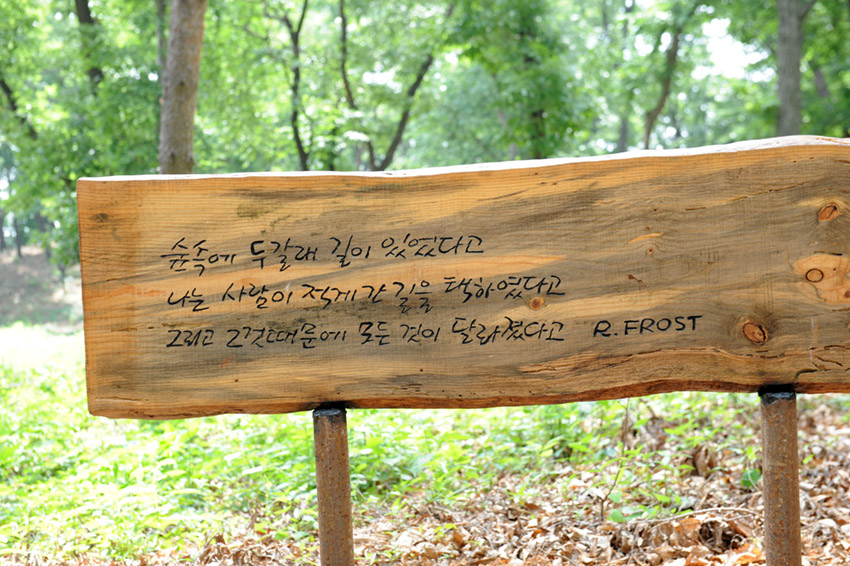 숲속에 두갈래 길이 있었다고
나는 사람이 적게 간 길을 택하였다고
그리고 그것때문에 모든 것이 달라졌다고 R.FROST